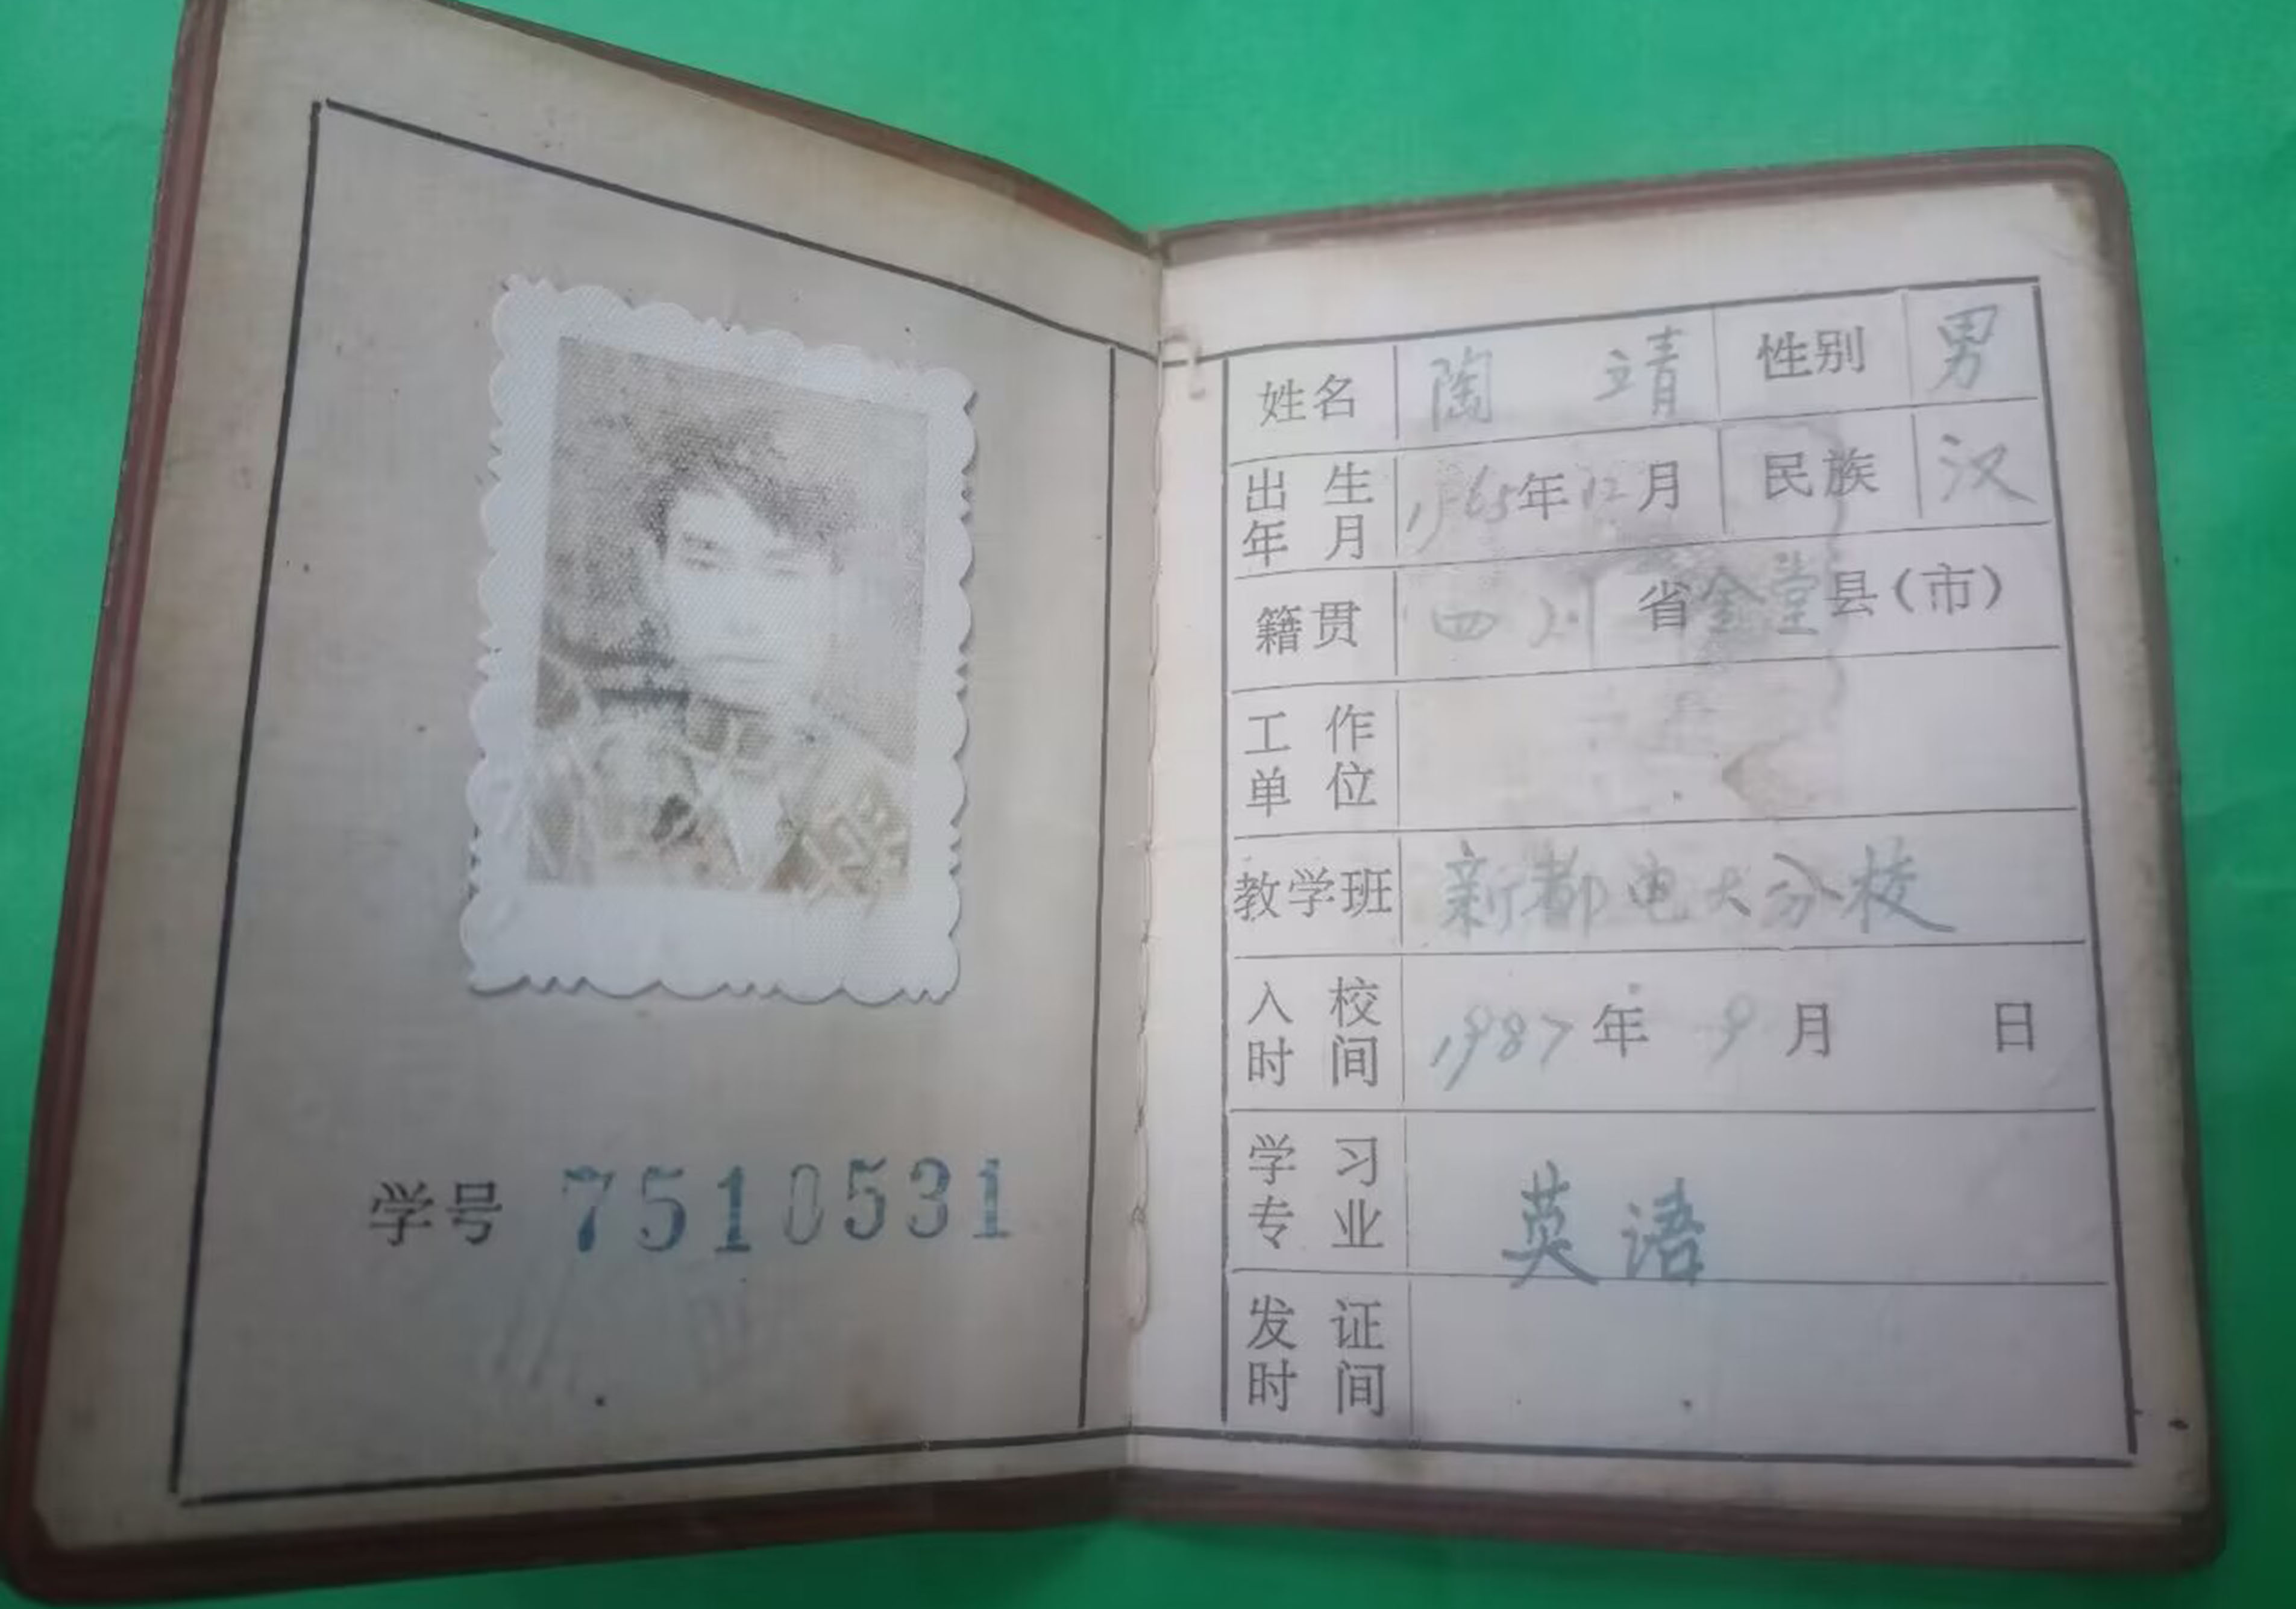 学号 7510531
姓名 陶靖 性别 男
出生年月 1965年12月 民族 汉
籍贯 四川省金堂县(市)
工作单位
教学班 新都电大分校
入校时间 1987年9月 日
学习专业 英语
发证时间